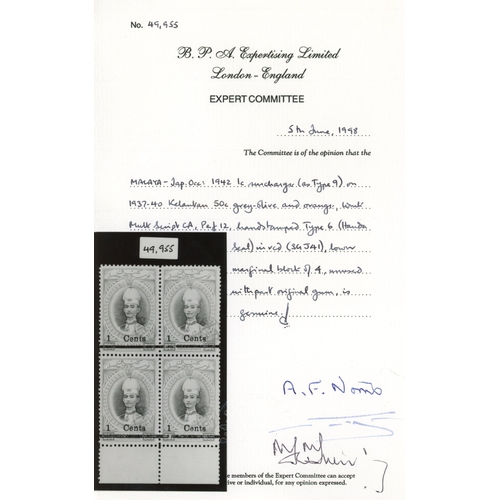 No. 49,955
B. P. A. Expertising Limited
London - England
EXPERT COMMITTEE
5th June, 1998
The Committee is of the opinion that the
MALAYA - Jap. Occ: 1942 1c surcharge (as Type 9) on
1937-40 Kelantan 50c grey-olive and orange, wmk
Mult Script CA, Perf 12, handstamped Type 6 (Handa
Seal) in red (SG J41), lower
marginal block of 4, unused
with part original gum, is
genuine.
49,955
1 Cents 1 Cents
1 Cents 1 Cents
A. F. Norris
members of the Expert Committee can accept
or individual, for any opinion expressed.